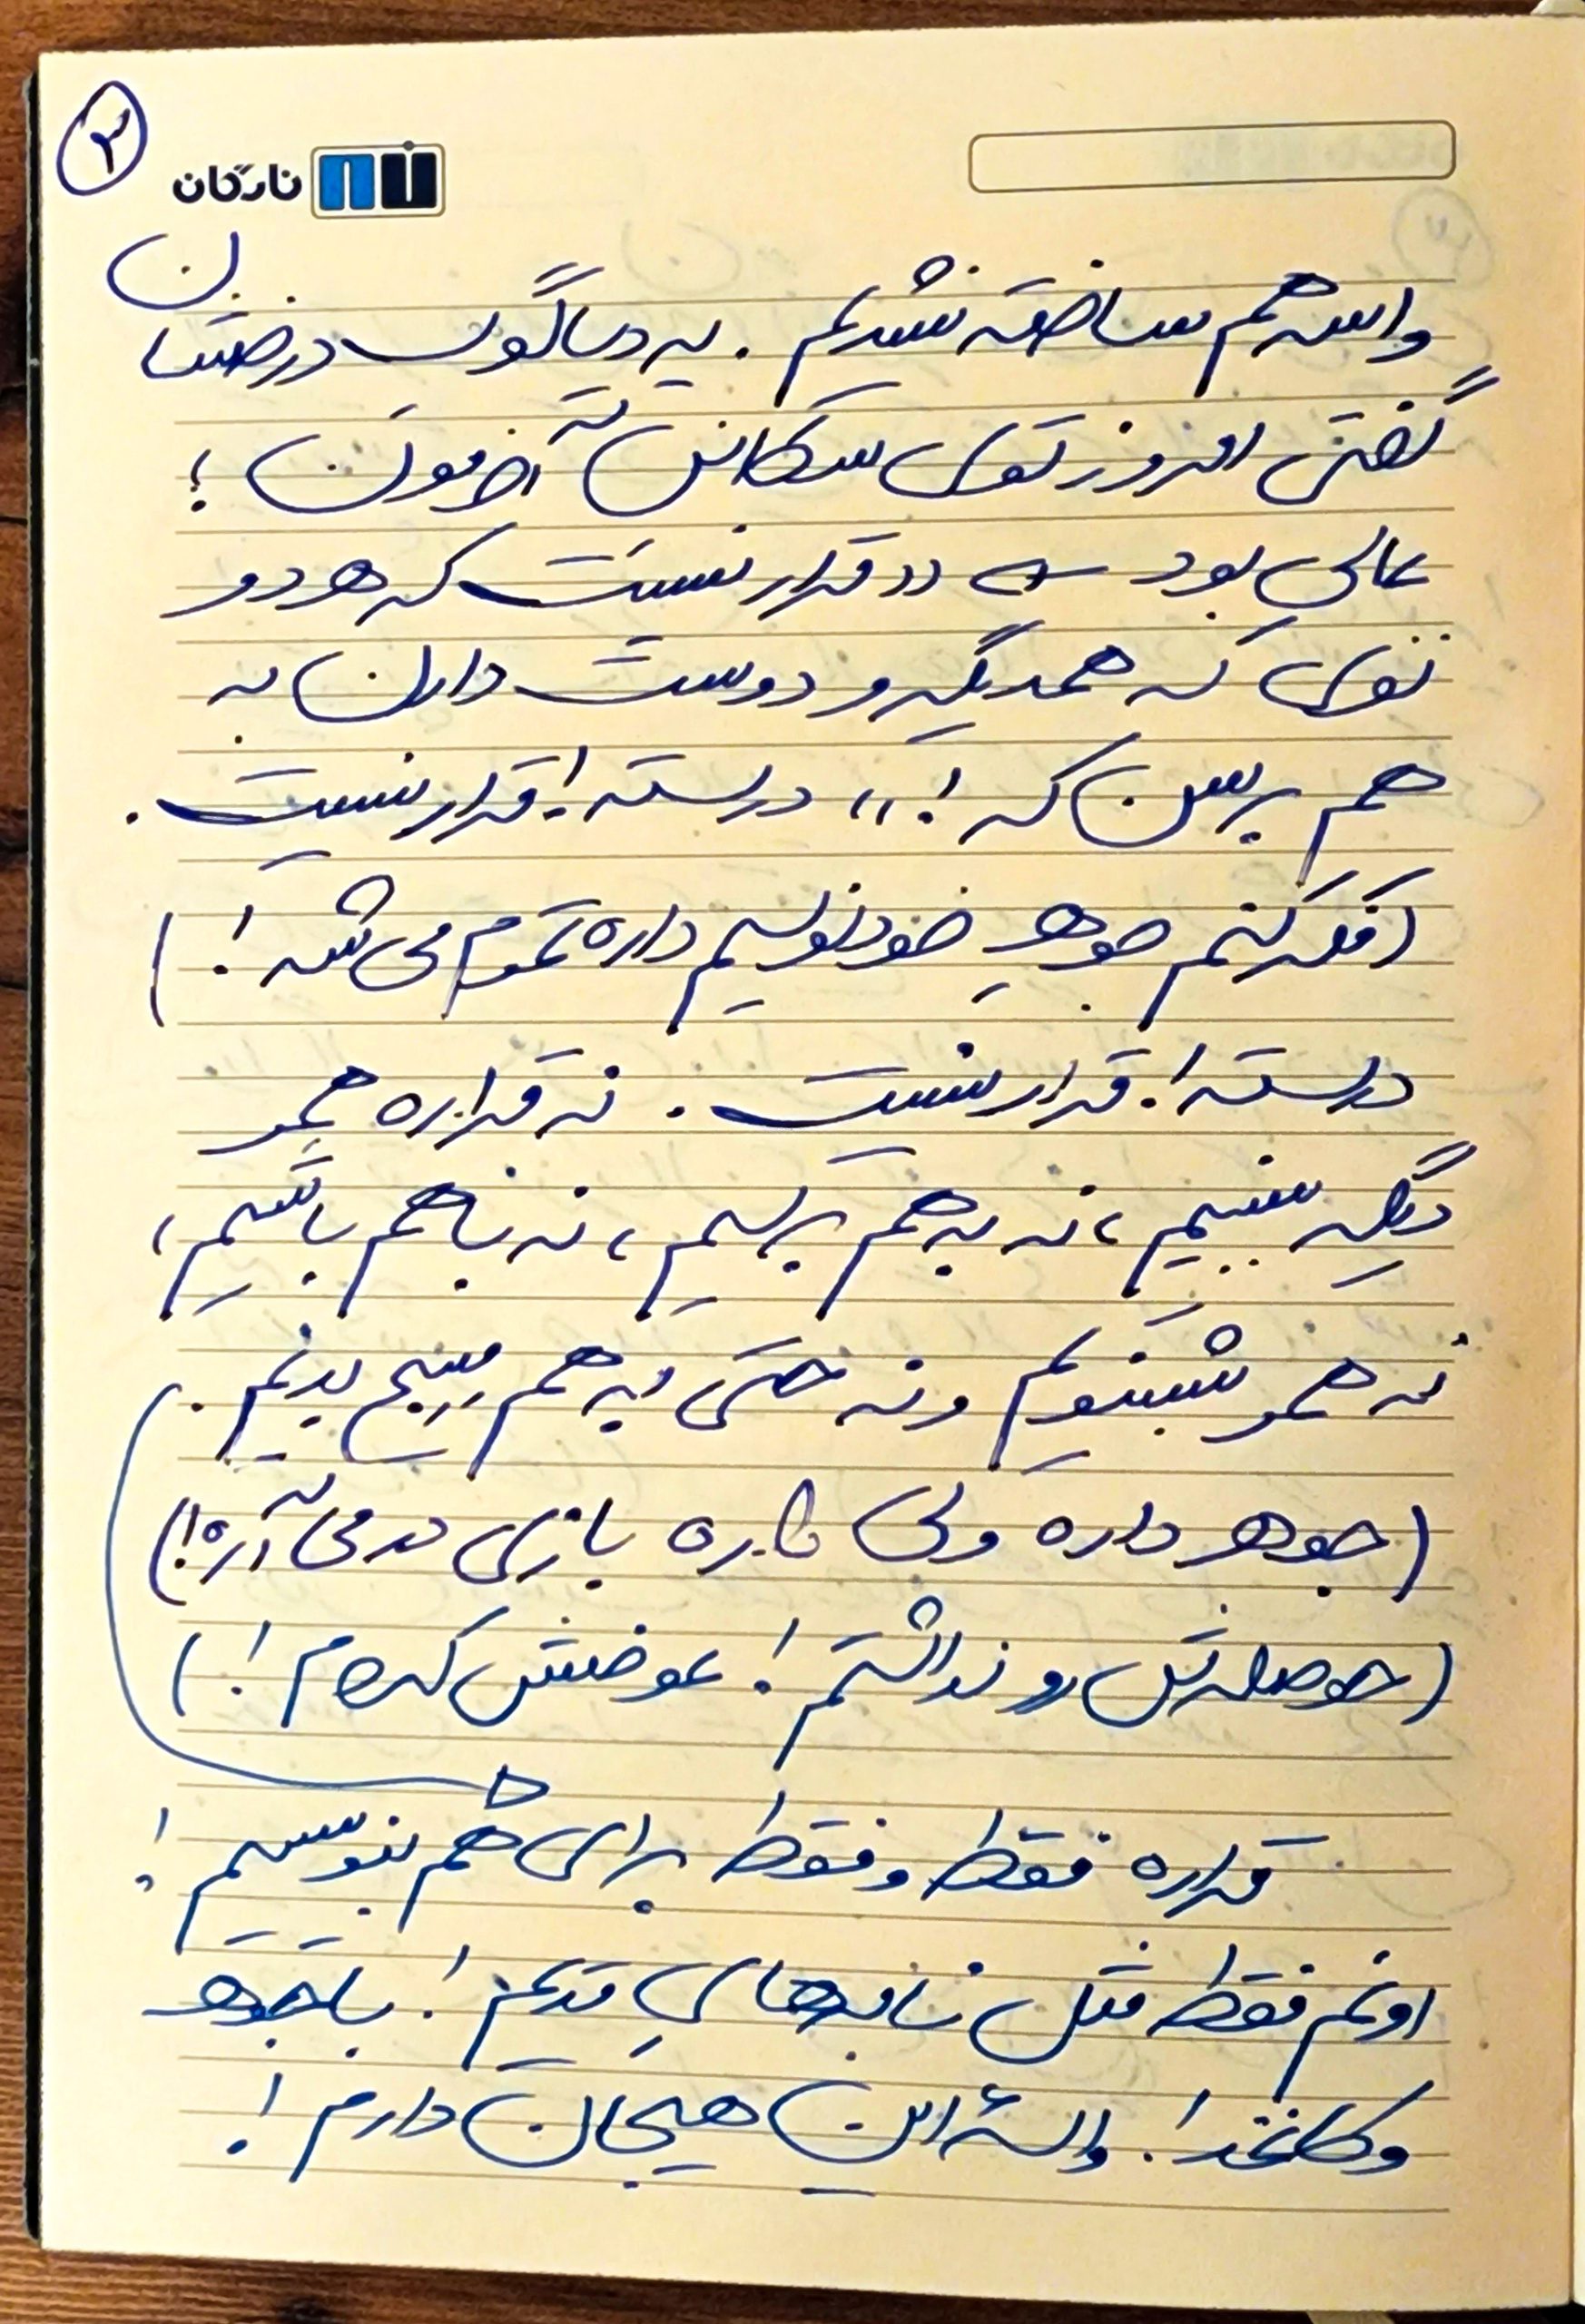 ۳
نارگان
واسه هم ساخته نشدیم. یه دیالوگ درخشان
گفتی امروز توی سکانس آخرمون؛
عالی بود "قرار نیست که هر دو
نفری که همدیگرو دوست دارن به
هم برسن که!" درسته! قرار نیست.
(فکر کنم جوهرِ خودنویسم داره تموم می‌شه!)
درسته! قرار نیست. نه قراره همو
دیگه ببینیم، نه به هم برسیم، نه با هم باشیم،
نه همو بشنویم و نه حتی به هم مسیج بدیم.
(جوهر داره ولی داره بازی در می‌آره!)
(حوصله‌ش رو نداشتم! عوضش کردم!)
قراره فقط و فقط برای هم بنویسیم!
اونم فقط مثل نامه‌های قدیم! با جوهر
و کاغذ! واسه این هیجان دارم!